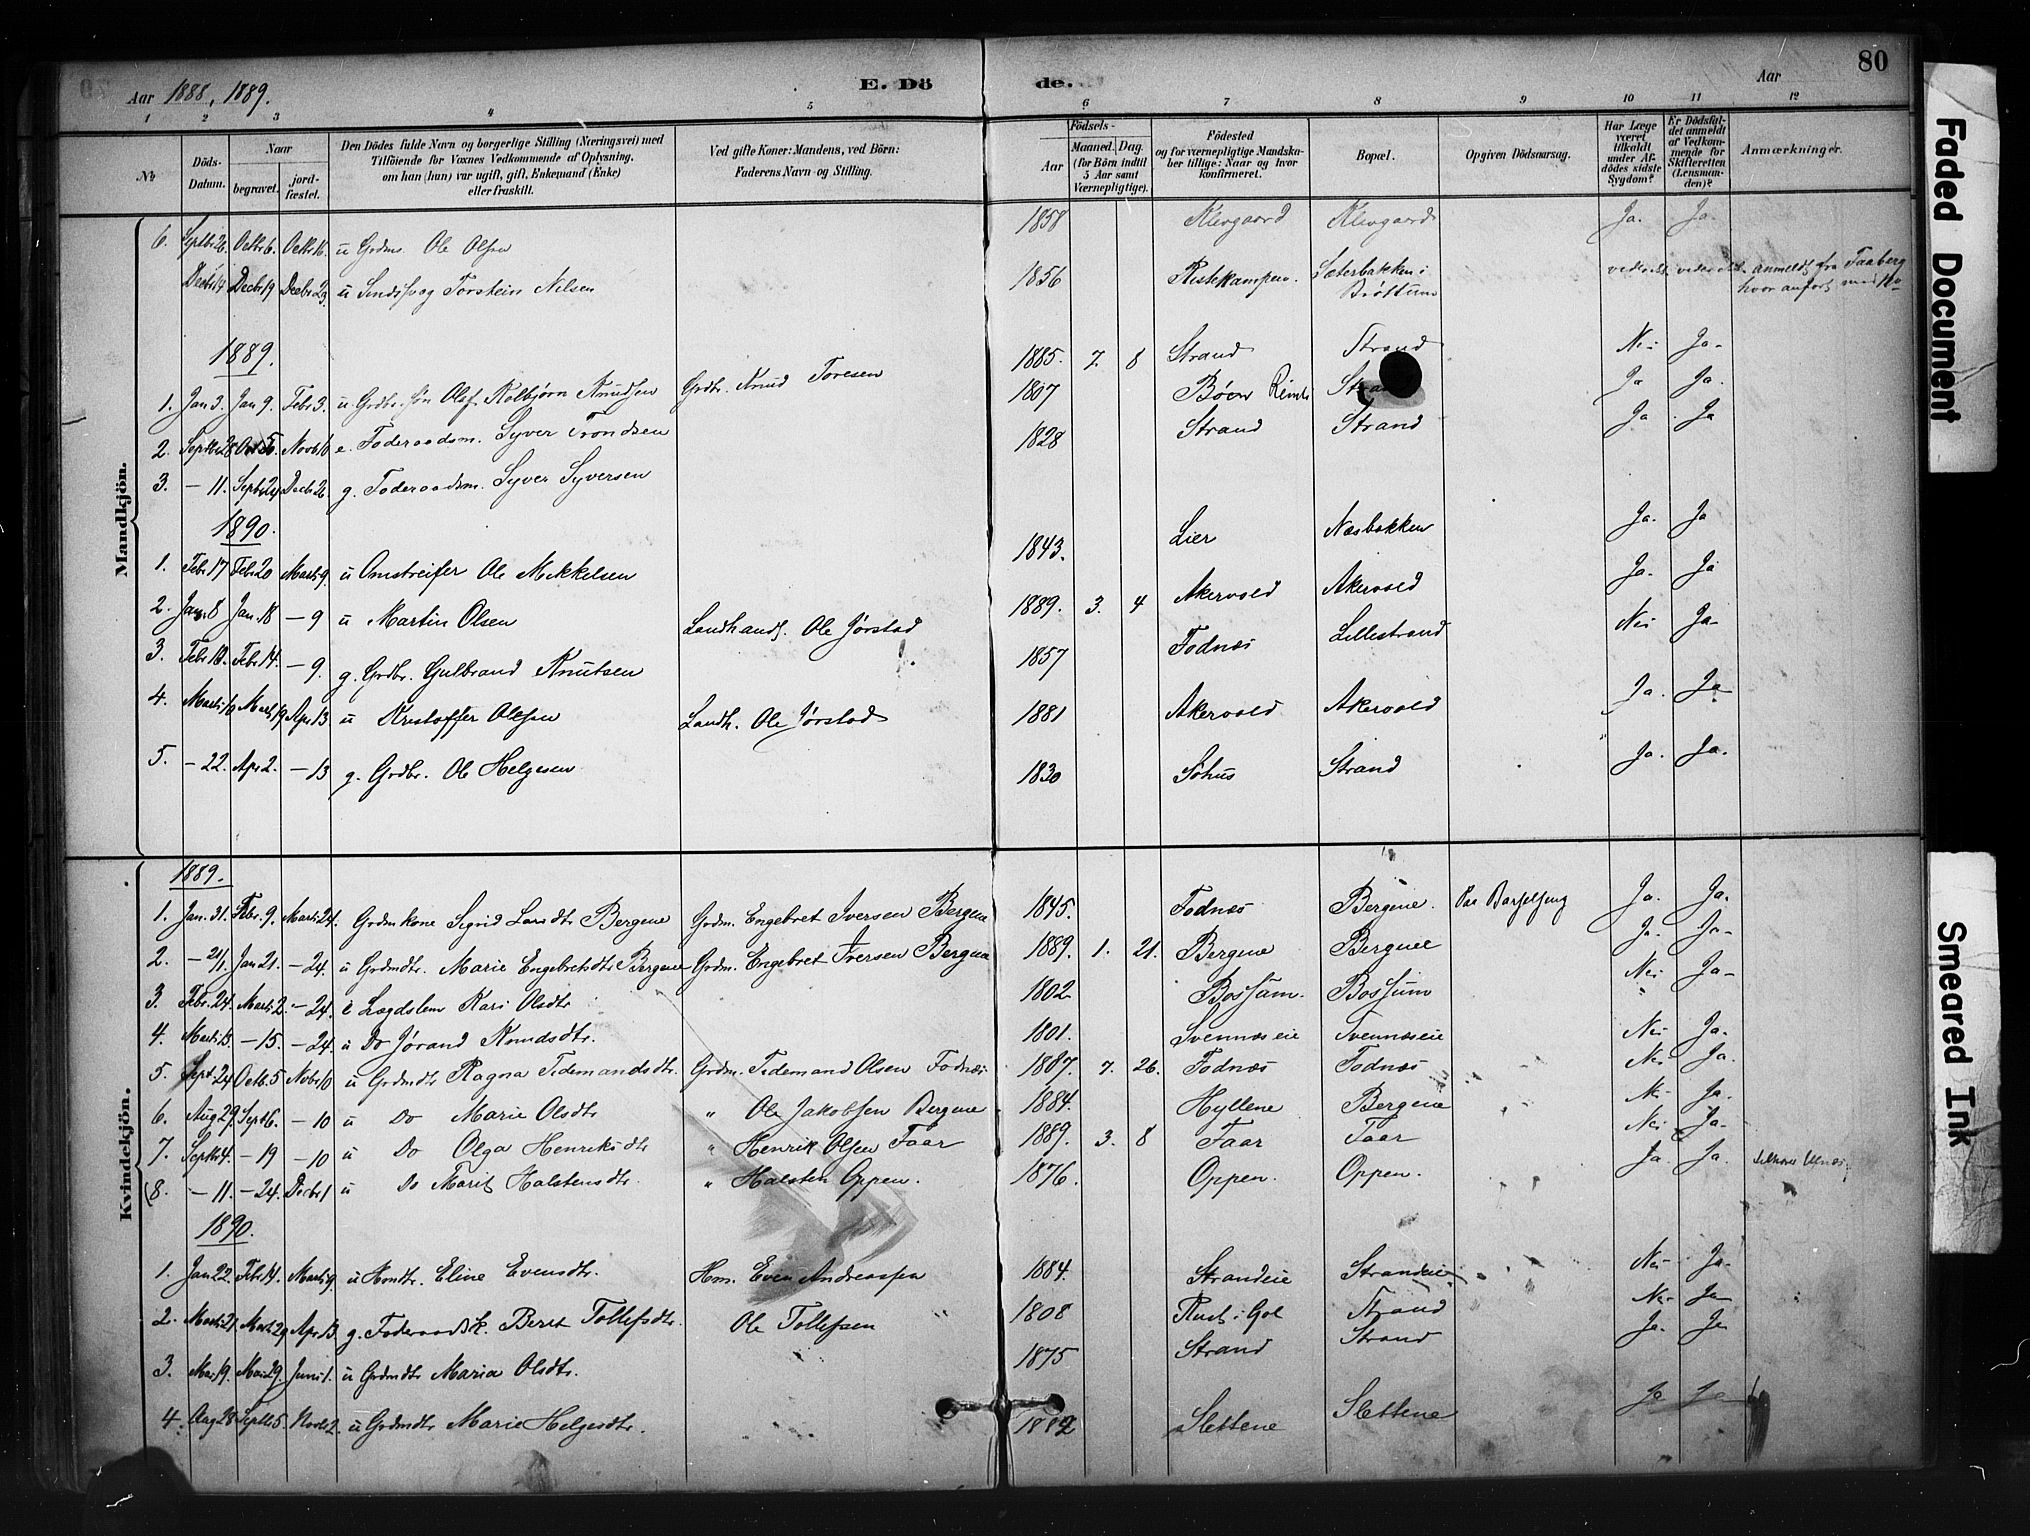 80
Aar 1888, 1889.
E. Dö de.
Aar
1 2 3 4 5 6 7 8 9 10 11 12
No
Döds-Datum.
Naar
begravet.
jord-fæstet.
Den Dödes fulde Navn og borgerlige Stilling (Næringsvei) med
Tilföiende for Voxnes Vedkommende af Oplysning,
om han (hun) var ugift, gift, Enkemand (Enke)
eller fraskilt.
Ved gifte Koner: Mandens, ved Börn:
Faderens Navn og Stilling.
Födsels-
Aar
Maaned. Dag.
(for Börn indtil
5 Aar samt
Værnepligtige).
Födested
og for værnepligtige Mandska-
ber tillige: Naar og hvor
konfirmeret.
Bopæl.
Opgiven Dödsaarsag.
Har Læge
været
tilkaldt
under Af-
dödes sidste
Sygdom?
Er Dödsfal-
det anmeldt
af Vedkom-
mende for
Skifteretten
(Lensman-
den)?
Anmærkninger.
Mandkjön.
6. Septbr 26. Octbr 6. Octbr 16. u Grdm. Ole Olsen 1858 Klevgaard Klevgaard Ja. Ja.
Decbr 14 Decbr 19 Decbr 29. u Torstein Nilsen 1856 Ristekampen. Sæterbakken i Brøttum anmeldt fra Faaberg
hvor anført med No
1889.
1. Jan 3. Jan 9. Febr 3. u. Grdbr. søn Olaf Kolbjørn Knudsen Grdbr. Knud Toresen 1885. 7. 8 Strand Strand Nei Ja-
2. Septbr 28 Novb 16 e. Foderaadsm. Syver Trondsen 1807 Bøen Ja Ja.
3. - 11. Septbr 24 Decbr 26 g. Foderaadsm. Syver Syversen 1828 Strand Strand Ja Ja
1890.
1. Febr 17 Febr 20 Marts 9. u Omstreifer Ole Mikkelsen 1843. Lier Næsbakken Ja. Ja
2. Jan. 8 Jan. 18 - 9 u Martin Olsen Landhandl. Ole Jørstad 1889. 3. 4 Akervold Akervold Ja. Ja
3. Febr Febr 14. - 9. g. Grdbr. Gulbrand Knutsen 1857 Fodnæs Lillestrand Nei Ja-
4. Marts 10 Marts 19 Apr 13 u Kristoffer Olesen Landh. Ole Jørstad 1881 Akervold Akervold Ja. Ja
5. - 22. Apr 2. - 13 g. Grdbr. Ole Helgesen 1830 Søhus Strand Ja. Ja.
Kvindekjön.
1889.
1. Jan. 31. Febr. 9. Marts 24. Grdmkone Sigrid Larsdtr Bergene Grdm. Engebret Iversen Bergene 1845. Fodnæs Bergene. Ja. Ja.
2. - 21/1. Jan 21. - 24. u Grdmdtr. Marie Engebretsdtr Bergene Grdm. Engebret Iversen Bergene 1889. 1. 21. Bergene Bergene Ja. Ja-
3. Febr. 24. Marts 2. - 24. e Lægdslem Kari Olsdtr 1802 Bossum. Bossum Nei Ja-
4. Marts 13. - 15. - 24. u Do Jørand Knudsdtr. 1801. Svennæseie Svennæseie Nei Ja.
5. Sept. 24 Octb. 5 Novbr 10 u Grdmdtr Ragna Tidemandsdtr. Grdm. Tidemand Olsen Fodnæs 1887. 7. 26. Fodnæs Fodnæs Nei Ja.
6. Aug 29. Septb 6. - 10 u Do Marie Olsdtr " Ole Jakobsen Bergene 1884. Hyllene Bergene Nei Ja.
7. Septbr 4. - 19 - 10 u Do Olga Henriksdtr " Henrik Olsen Faar 1889. 3. 8 Faar Faar Nei Ja-
8. - 11. - 24. Decbr 1 u Do Marit Halstensdtr. " Halsten Oppen. 1876. Oppen. Oppen. Ja. Ja.
1890.
1. Jan 22. Febr 14. Marts 9. u Hmdtr. Eline Evensdtr. Hm. Even Andreassen 1884. Strandeie Strandeie Nei Ja.
2. Marts 21. Marts 29 Apr 13. g. Foderaadsk. Berit Tollefsdtr. Ole Tollefsen 1808 Rust i Gol Strand Nei Ja
3. Mai 19. Mai 29. Juni 1. u Grdmdtr Maria Olsdtr. 1875 Strand Strand Ja. Ja
4. Aug 28 Septbr 5. Novbr 2. u Grdmdtr Marie Helgesdtr. 1882 Slettene Slettene Ja Ja
Faded Document
Smeared Ink